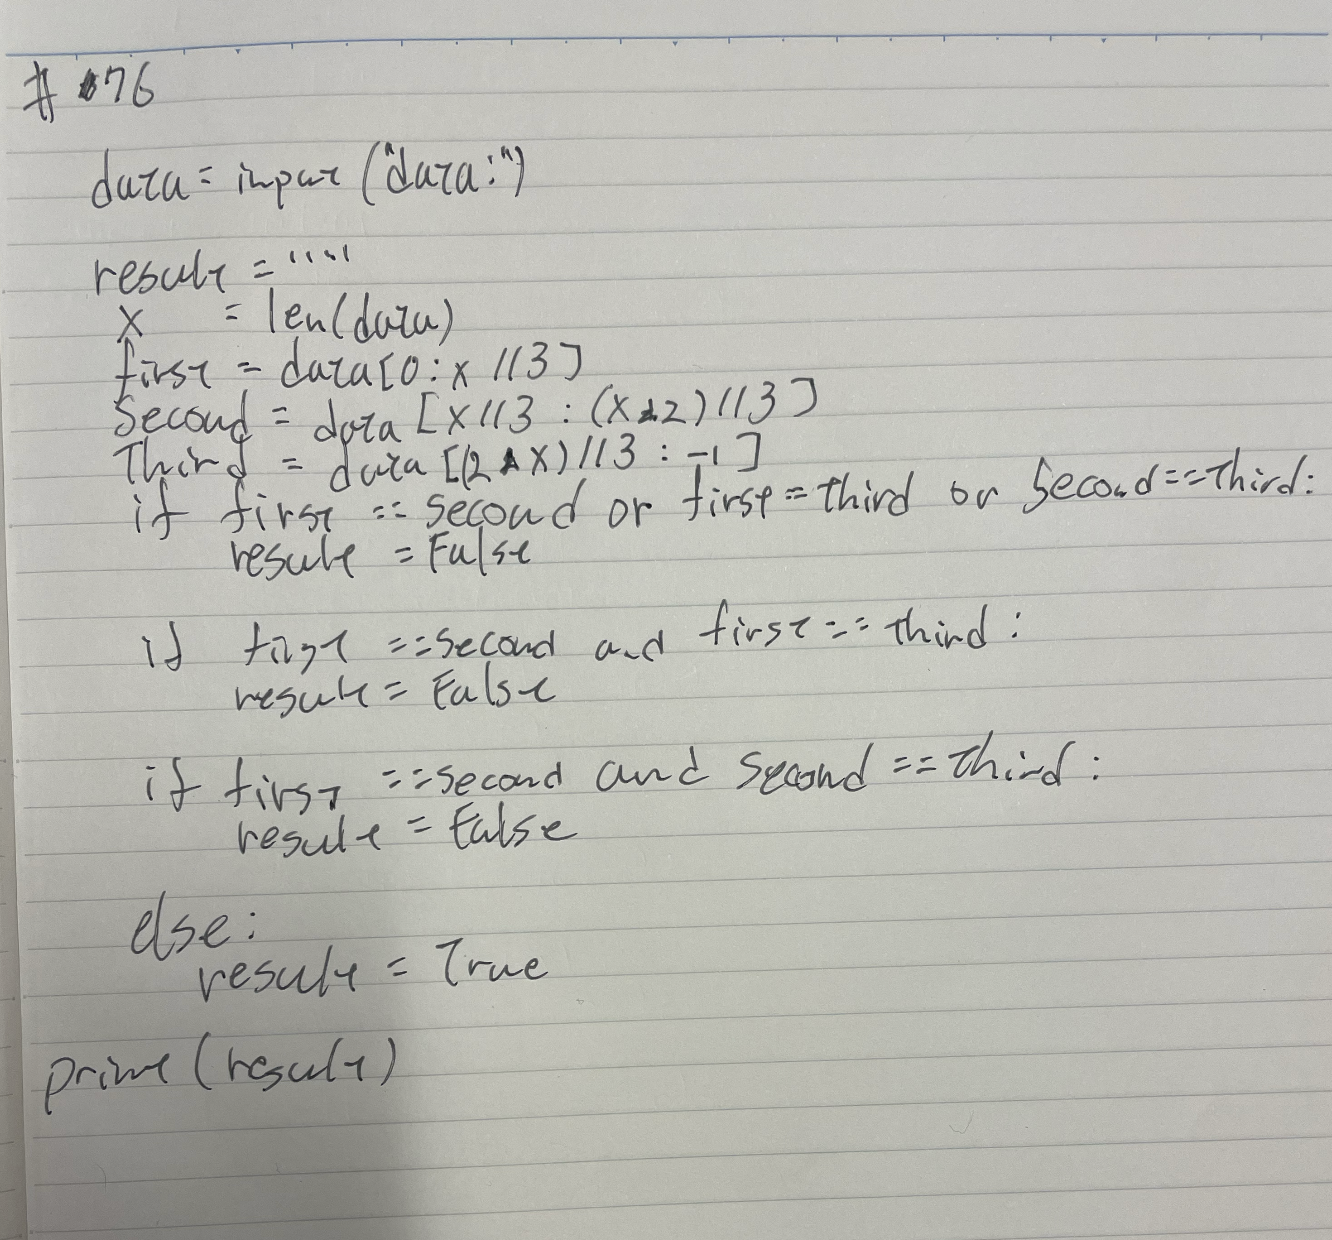 # 76
data = input ("data:")
result = ""
x = len(data)
first = data[0:x//3]
second = data[x//3 : (x*2)//3]
Third = data[(2*x)//3 : -1]
if first == second or first = third or second == third:
result = False
if first == second and first == third:
result = False
if first == second and second == third:
result = False
else:
result = True
print(result)